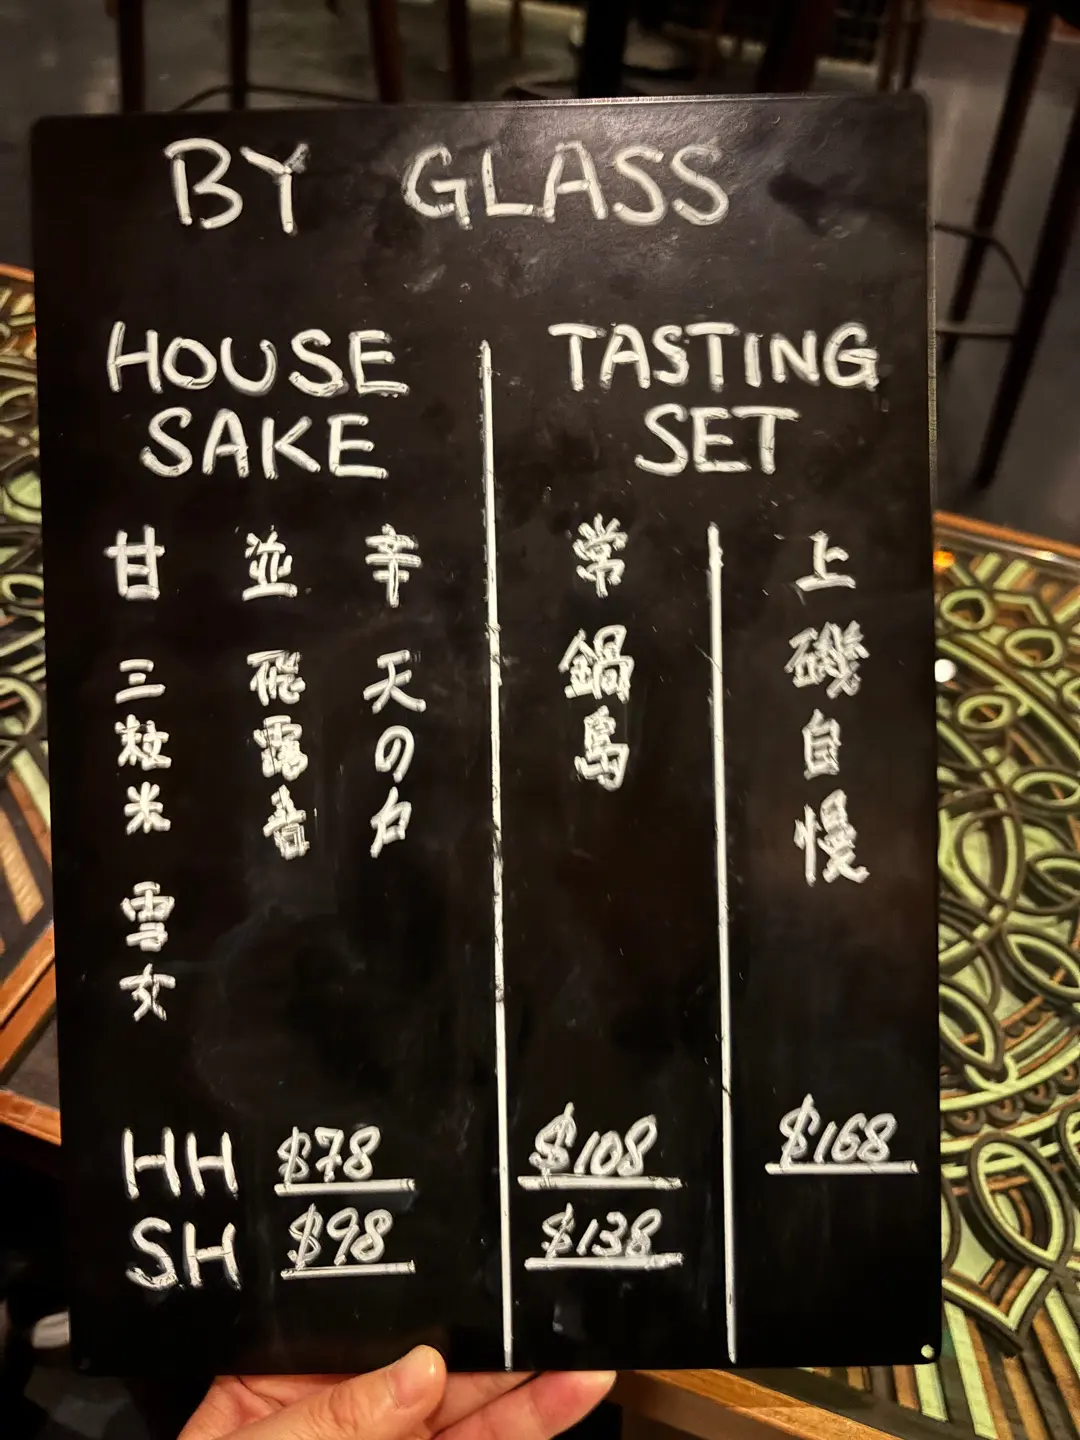 BY GLASS
HOUSE
SAKE
甘
三粒米
雪女
並
飛露喜
辛
天の戸
TASTING
SET
常
鍋島
上
磯自慢
HH $78 $108 $168
SH $98 $138